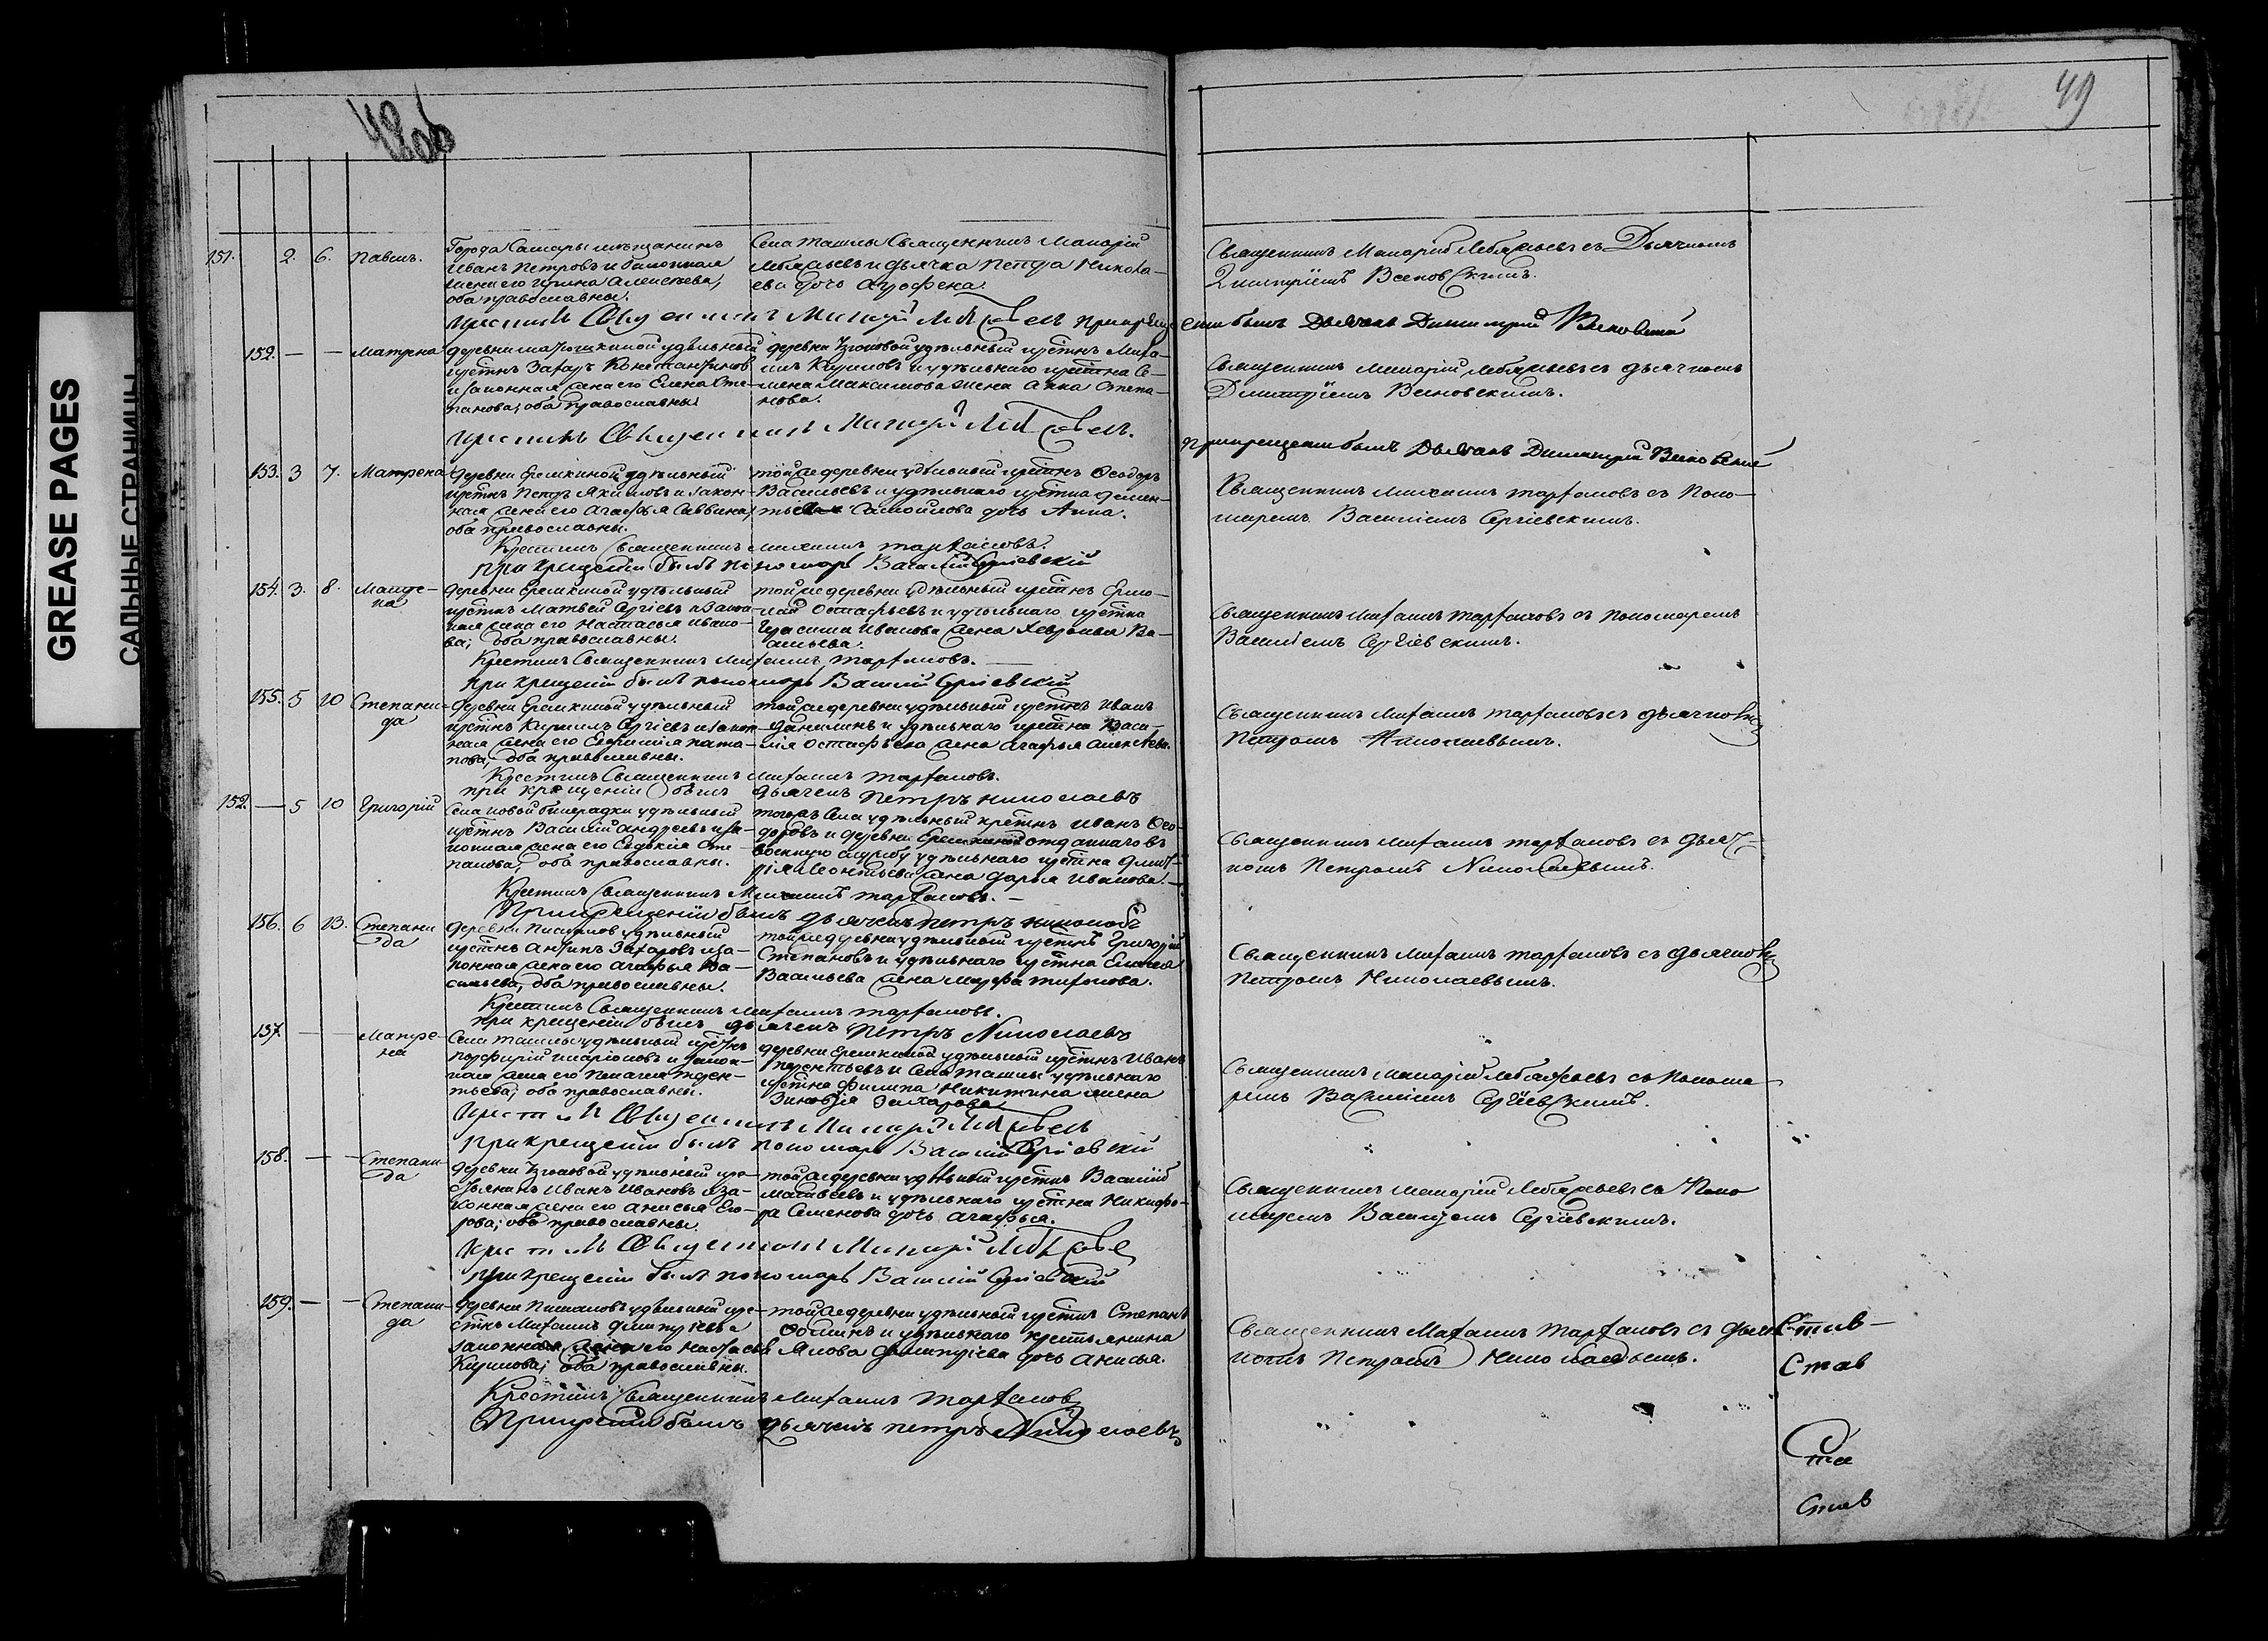 GREASE PAGES
САЛЬНЫЕ СТРАНИЦЫ
48об
49
151. 2. 6. Павелъ.
Города Самары мѣщанинъ
Иванъ Петровъ и законная
жена его Ирина Алексѣева,
оба православны.
Села Ташлы Священникъ Макарій
Лебяжьевъ и дьячка Петра Никола-
ева дочь Агрофена.
Священникъ Макарій Лебяжьевъ съ Дьячкомъ
Димитріемъ
Крестилъ Священникъ Макарій Лебяжьевъ при крещеніи былъ Дьячекъ Димитрій
152. — — Матрена
деревни удѣльный
крестнъ Захаръ Константиновъ
и законная жена его Елена Сте-
панова; оба православны
деревни Узюковой удѣльный крестнъ Миха-
илъ Кириловъ и удѣльнаго крестна Се-
мена Максимова жена Анна Степа-
нова.
Священникъ Макарій Лебяжьевъ съ дьячкомъ
Димитріемъ
Крестилъ Священникъ Макарій Лебяжьевъ.
При крещеніи былъ Дьячекъ Димитрій
153. 3 7. Матрена
Деревни Еремкиной удѣльный
крестнъ Петръ Якимовъ и закон-
ная жена его Агафья Саввина,
оба православны.
той же деревни удѣльный крестнъ Ѳеодоръ
Васильевъ и удѣльнаго крестна
Самойлова дочь Анна.
Священникъ Михаилъ Тарховъ съ Поно-
маремъ Василіемъ Сергіевскимъ.
Крестилъ Священникъ Михаилъ
При крещеніи былъ пономарь Василій Сергіевскій
154. 3. 8. Матре-
на
Деревни Еремкиной удѣльный
крестнъ Матвей Сергіевъ и закон-
ная жена его Настасья Ивано-
ва; оба православны.
той же деревни удѣльный крестнъ Ермо-
лай Остафьевъ и удѣльнаго крестна
Герасима Иванова жена Хевронья Ва-
сильева.
Священникъ Михаилъ съ пономаремъ
Василіемъ Сергіевскимъ.
Крестилъ Священникъ Михаилъ
При крещеніи былъ пономарь Василій Сергіевскій
155. 5 10 Степани-
да
Деревни Еремкиной удѣльный
крестнъ Кирилъ Сергіевъ и закон-
ная жена его Евфимія Пота-
пова, оба православны.
той же деревни удѣльный крестнъ Иванъ
Данилинъ и удѣльнаго крестна Васи-
лія Остафьева жена Агафья Алексѣева.
Священникъ Михаилъ съ дьячкомъ
Петромъ Николаевымъ.
Крестилъ Священникъ Михаилъ
при крещеніи былъ дьячекъ Петръ Николаевъ
152. — 5 10 Григорій
Села Новой Бинарадки удѣльный
крестнъ Василій Андреевъ и за-
конная жена его Евдокія Сте-
панова; оба православны.
тогожъ Села удѣльный крестнъ Иванъ Ѳео-
доровъ и деревни Еремкиной отданнаго въ
военную службу удѣльнаго крестна Дмит-
рія Леонтьева жена Дарья Иванова.
Священникъ Михаилъ съ дьяч-
комъ Петромъ Николаевымъ.
Крестилъ Священникъ Михаилъ
При крещеніи былъ дьячекъ Петръ Николаевъ
156. 6 13. Степани
да
Деревни удѣльный
крестнъ Антипъ Захаровъ и за-
конная жена его Агафья Ва-
сильева, оба православны.
той же деревни удѣльный крестнъ Григорій
Степановъ и удѣльнаго крестна
Васильева жена Марфа Тихонова.
Священникъ Михаилъ съ дьячкомъ
Петромъ Николаевымъ.
Крестилъ Священникъ Михаилъ
При крещеніи былъ дьячекъ Петръ Николаевъ
157 — — Матре-
на
Села Ташлы удѣльный крестнъ
Порфирій Иларіоновъ и закон-
ная жена его Пелагея
оба православны.
деревни Еремкиной удѣльный крестнъ Иванъ
и Села Ташлы удѣльнаго
крестна Филипа Никитина жена
Зиновія Захарова
Священникъ Макарій Лебяжьевъ съ Понома-
ремъ Василіемъ Сергіевскимъ.
Крестилъ Священникъ Макарій Лебяжьевъ
при крещеніи былъ пономарь Василій Сергіевскій
158. — — Степани-
да
Деревни Узюковой удѣльный кре-
стьянинъ Иванъ Ивановъ и за-
конная жена его Анисья Его-
рова; оба православны
той же деревни удѣльный крестнъ Василій
Матвѣевъ и удѣльнаго крестна Никифо-
ра Семенова дочь Агафья.
Священникъ Макарій Лебяжьевъ съ Поно
маремъ Василіемъ Сергіевскимъ.
Крестилъ Священникъ Макарій Лебяжьевъ
При крещеніи былъ пономарь Василій Сергіевскій
159. — — Степани-
да
Деревни удѣльный кре-
стнъ Михаилъ Дмитріевъ и
законная жена его Настасья
Кирилова; оба православны.
той же деревни удѣльный крестнъ Степанъ
и удѣльнаго крестьянина
Якова Дмитріева дочь Анисья.
Священникъ Михаилъ съ дьяч
комъ Петромъ Николаевымъ.
Крестилъ Священникъ Михаилъ
При крещеніи былъ дьячекъ Петръ Николаевъ
Став